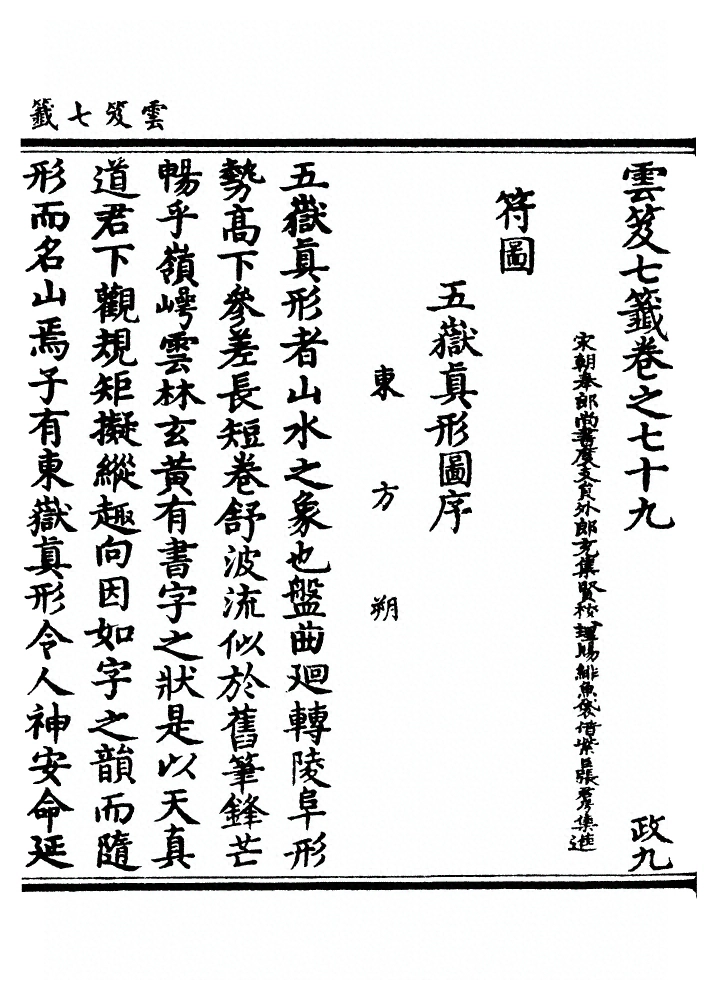 雲笈七籤
雲笈七籤卷之七十九 政九
宋朝奉郎尚書度支員外郎充集賢校理賜緋魚袋借紫臣張君房集進
符圖
五嶽眞形圖序
東方朔
五嶽眞形者山水之象也盤曲廻轉陵阜形
勢高下參差長短卷舒波流似於舊筆鋒芒
暢乎嶺崿雲林玄黃有書字之狀是以天真
道君下觀規矩擬縱趣向因如字之韻而隨
形而名山焉子有東嶽眞形令人神安命延